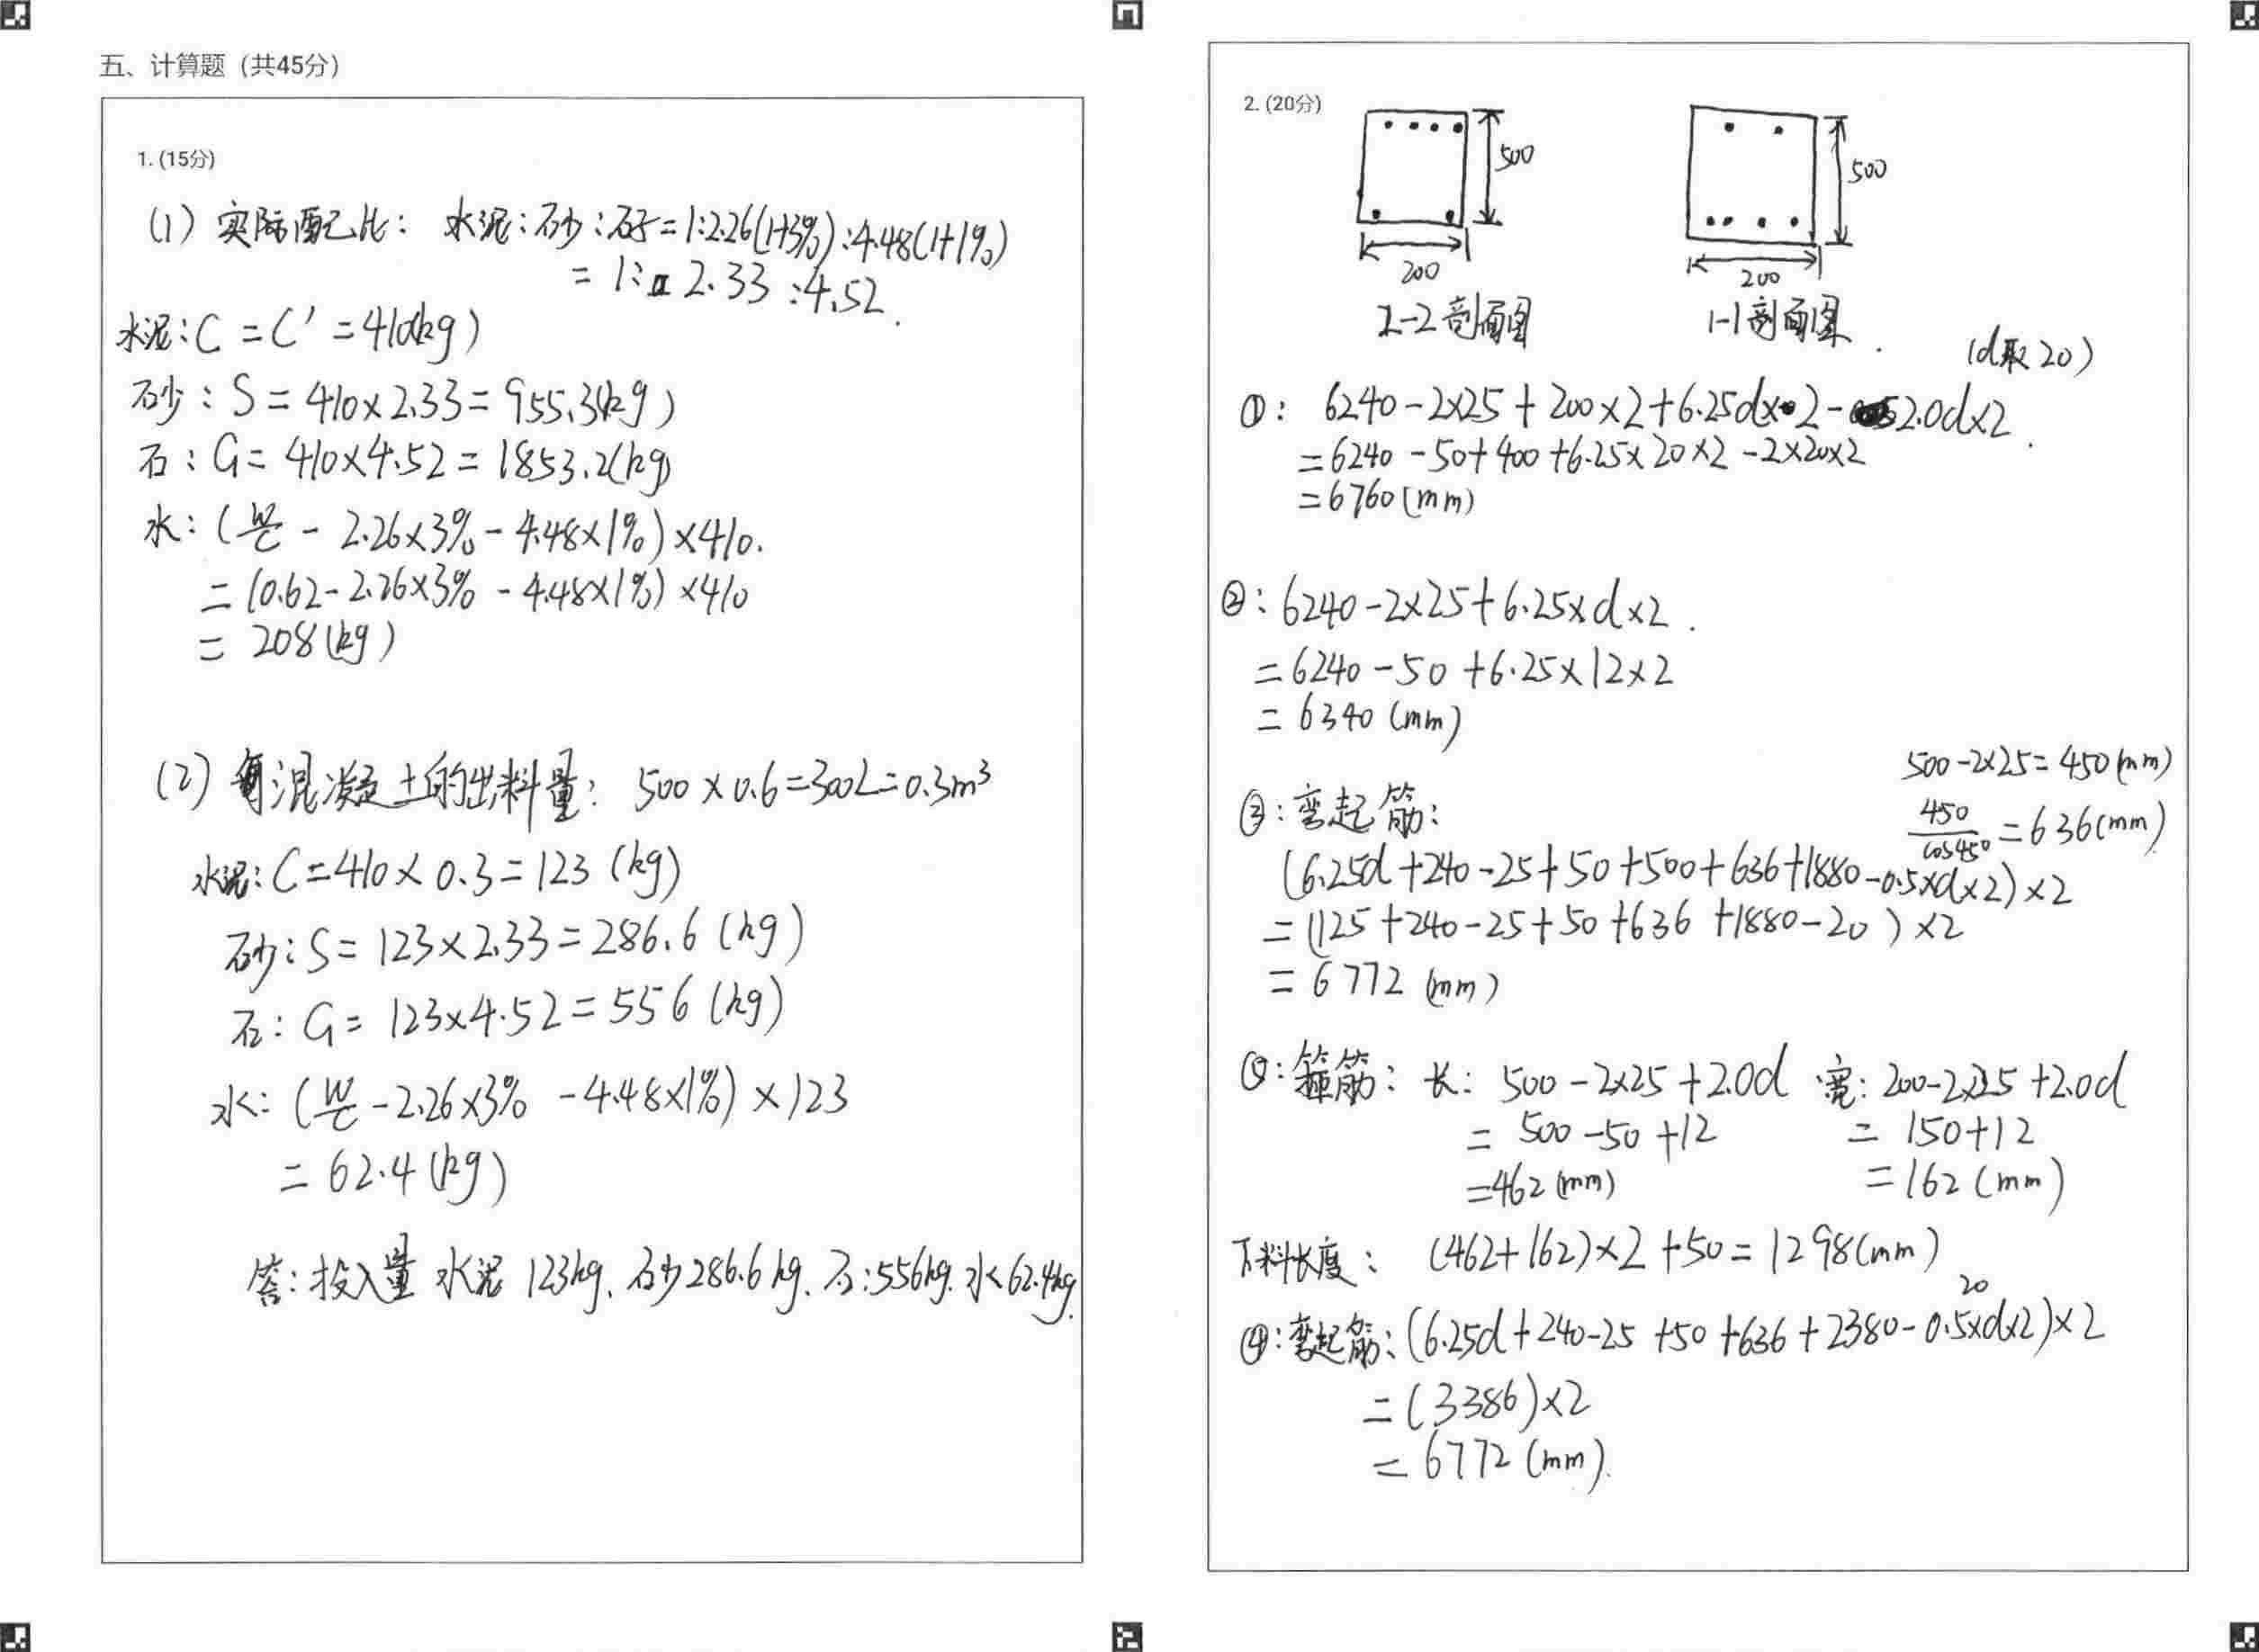 五、计算题 (共45分)
1. (15分)
(1) 实际配比: 水泥:砂:石子=1:2.26(1+3%):4.48(1+1%)
=1:2.33:4.52.
水泥:C=C'=410(kg)
砂:S=410×2.33=955.3(kg)
石:G=410×4.52=1853.2(kg)
水:(W/C-2.26×3%-4.48×1%)×410.
=(0.62-2.26×3%-4.48×1%)×410
=208(kg)
(2) 混凝土的出料量: 500×0.6=300L=0.3m³
水泥:C=410×0.3=123(kg)
砂:S=123×2.33=286.6(kg)
石:G=123×4.52=556(kg)
水:(W/C-2.26×3%-4.48×1%)×123
=62.4(kg)
答:投入量 水泥 123kg、砂286.6kg、石:556kg.水62.4kg.
2. (20分)
500
500
200
200
2-2剖面图
1-1剖面图.
(d取20)
①: 6240-2×25+200×2+6.25d×2-2.0d×2.
=6240-50+400+6.25×20×2-2×20×2
=6760(mm)
②:6240-2×25+6.25×d×2.
=6240-50+6.25×12×2
=6340(mm)
500-2×25=450(mm)
③:弯起筋:
450/cos45°=636(mm)
(6.25d+240-25+50+500+636+1880-0.5×d×2)×2
=(125+240-25+50+636+1880-20)×2
=6772(mm)
⑤:箍筋: 长: 500-2×25+2.0d 宽: 200-2×25+2.0d
=500-50+12 =150+12
=462(mm) =162(mm)
下料长度: (462+162)×2+50=1298(mm)
20
④:弯起筋:(6.25d+240-25+50+636+2380-0.5×d×2)×2
=(3386)×2
=6772(mm).